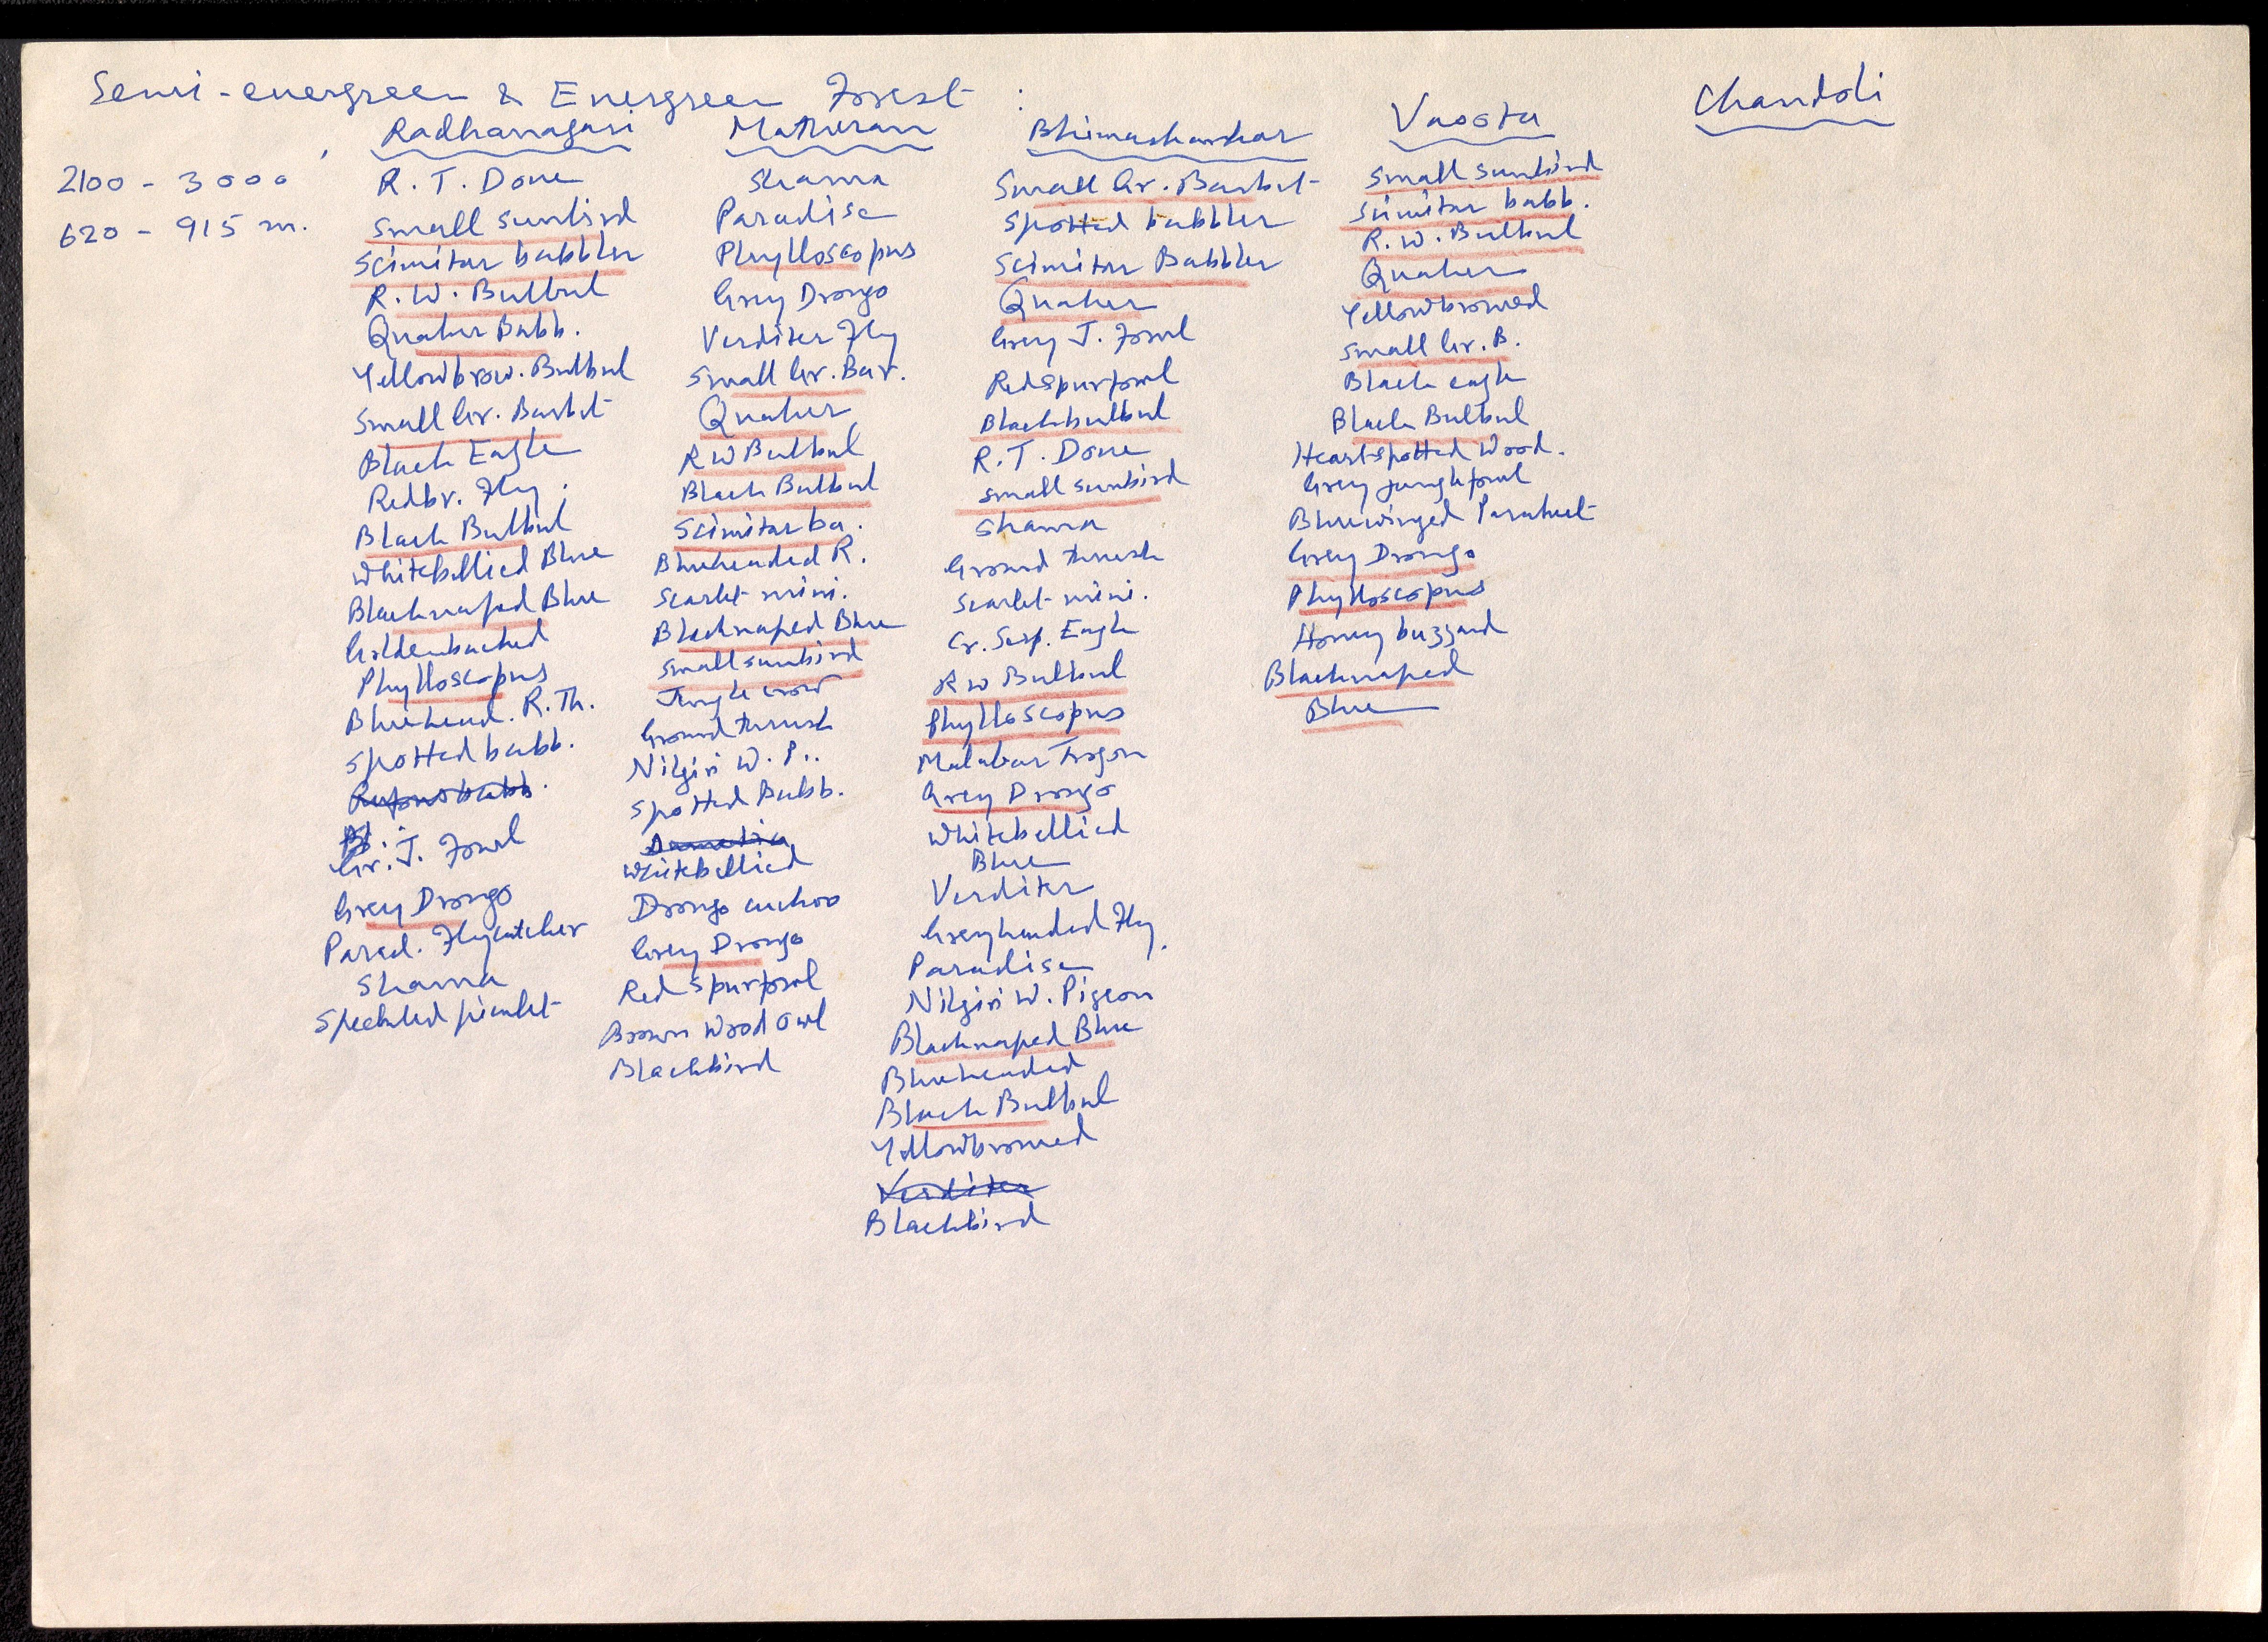 Semi-evergreen & Evergreen Forest :
2100 - 3000'
620 - 915 m.
Radhanagari
R. T. Dove
Small Sunbird
Scimitar babbler
R. W. Bulbul
Quaker Babb.
Yellowbrow. Bulbul
Small Gr. Barbet
Black Eagle
Redbr. Fly.
Black Bulbul
Whitebellied Blue
Blacknaped Blue
Goldenbacked
Phylloscopus
Bluehead. R. Th.
Spotted babb.
Rufous babb.
Gr. J. Fowl
Grey Drongo
Parad. Flycatcher
Shama
Speckled piculet
Matheran
Shama
Paradise
Phylloscopus
Grey Drongo
Verditer Fly
Small Gr. Bar.
Quaker
RW Bulbul
Black Bulbul
Scimitar ba.
Blueheaded R.
Scarlet mini.
Blacknaped Blue
Small sunbird
Jungle crow
Ground thrush
Nilgiri W. P..
Spotted Babb.
Whitebellied
Drongo cuckoo
Grey Drongo
Red spurfowl
Brown Wood Owl
Blackbird
Bhimashankar
Small Gr. Barbet
Spotted babbler
Scimitar Babbler
Quaker
Grey J. Fowl
Redspurfowl
Blackbulbul
R. T. Dove
Small sunbird
Shama
Ground thrush
Scarlet mini.
Cr. Serp. Eagle
RW Bulbul
Phylloscopus
Malabar Trogon
Grey Drongo
Whitebellied
Blue
Verditer
Greyheaded Fly.
Paradise
Nilgiri W. Pigeon
Blacknaped Blue
Blueheaded
Black Bulbul
Yellowbrowed
Verditer
Blackbird
Vasota
Small sunbird
Scimitar babb.
R. W. Bulbul
Quaker
Yellowbrowed
Small Gr. B.
Black eagle
Black Bulbul
Heartspotted Wood.
Grey junglefowl
Bluewinged Parakeet
Grey Drongo
Phylloscopus
Honey buzzard
Blacknaped
Blue
Chandoli